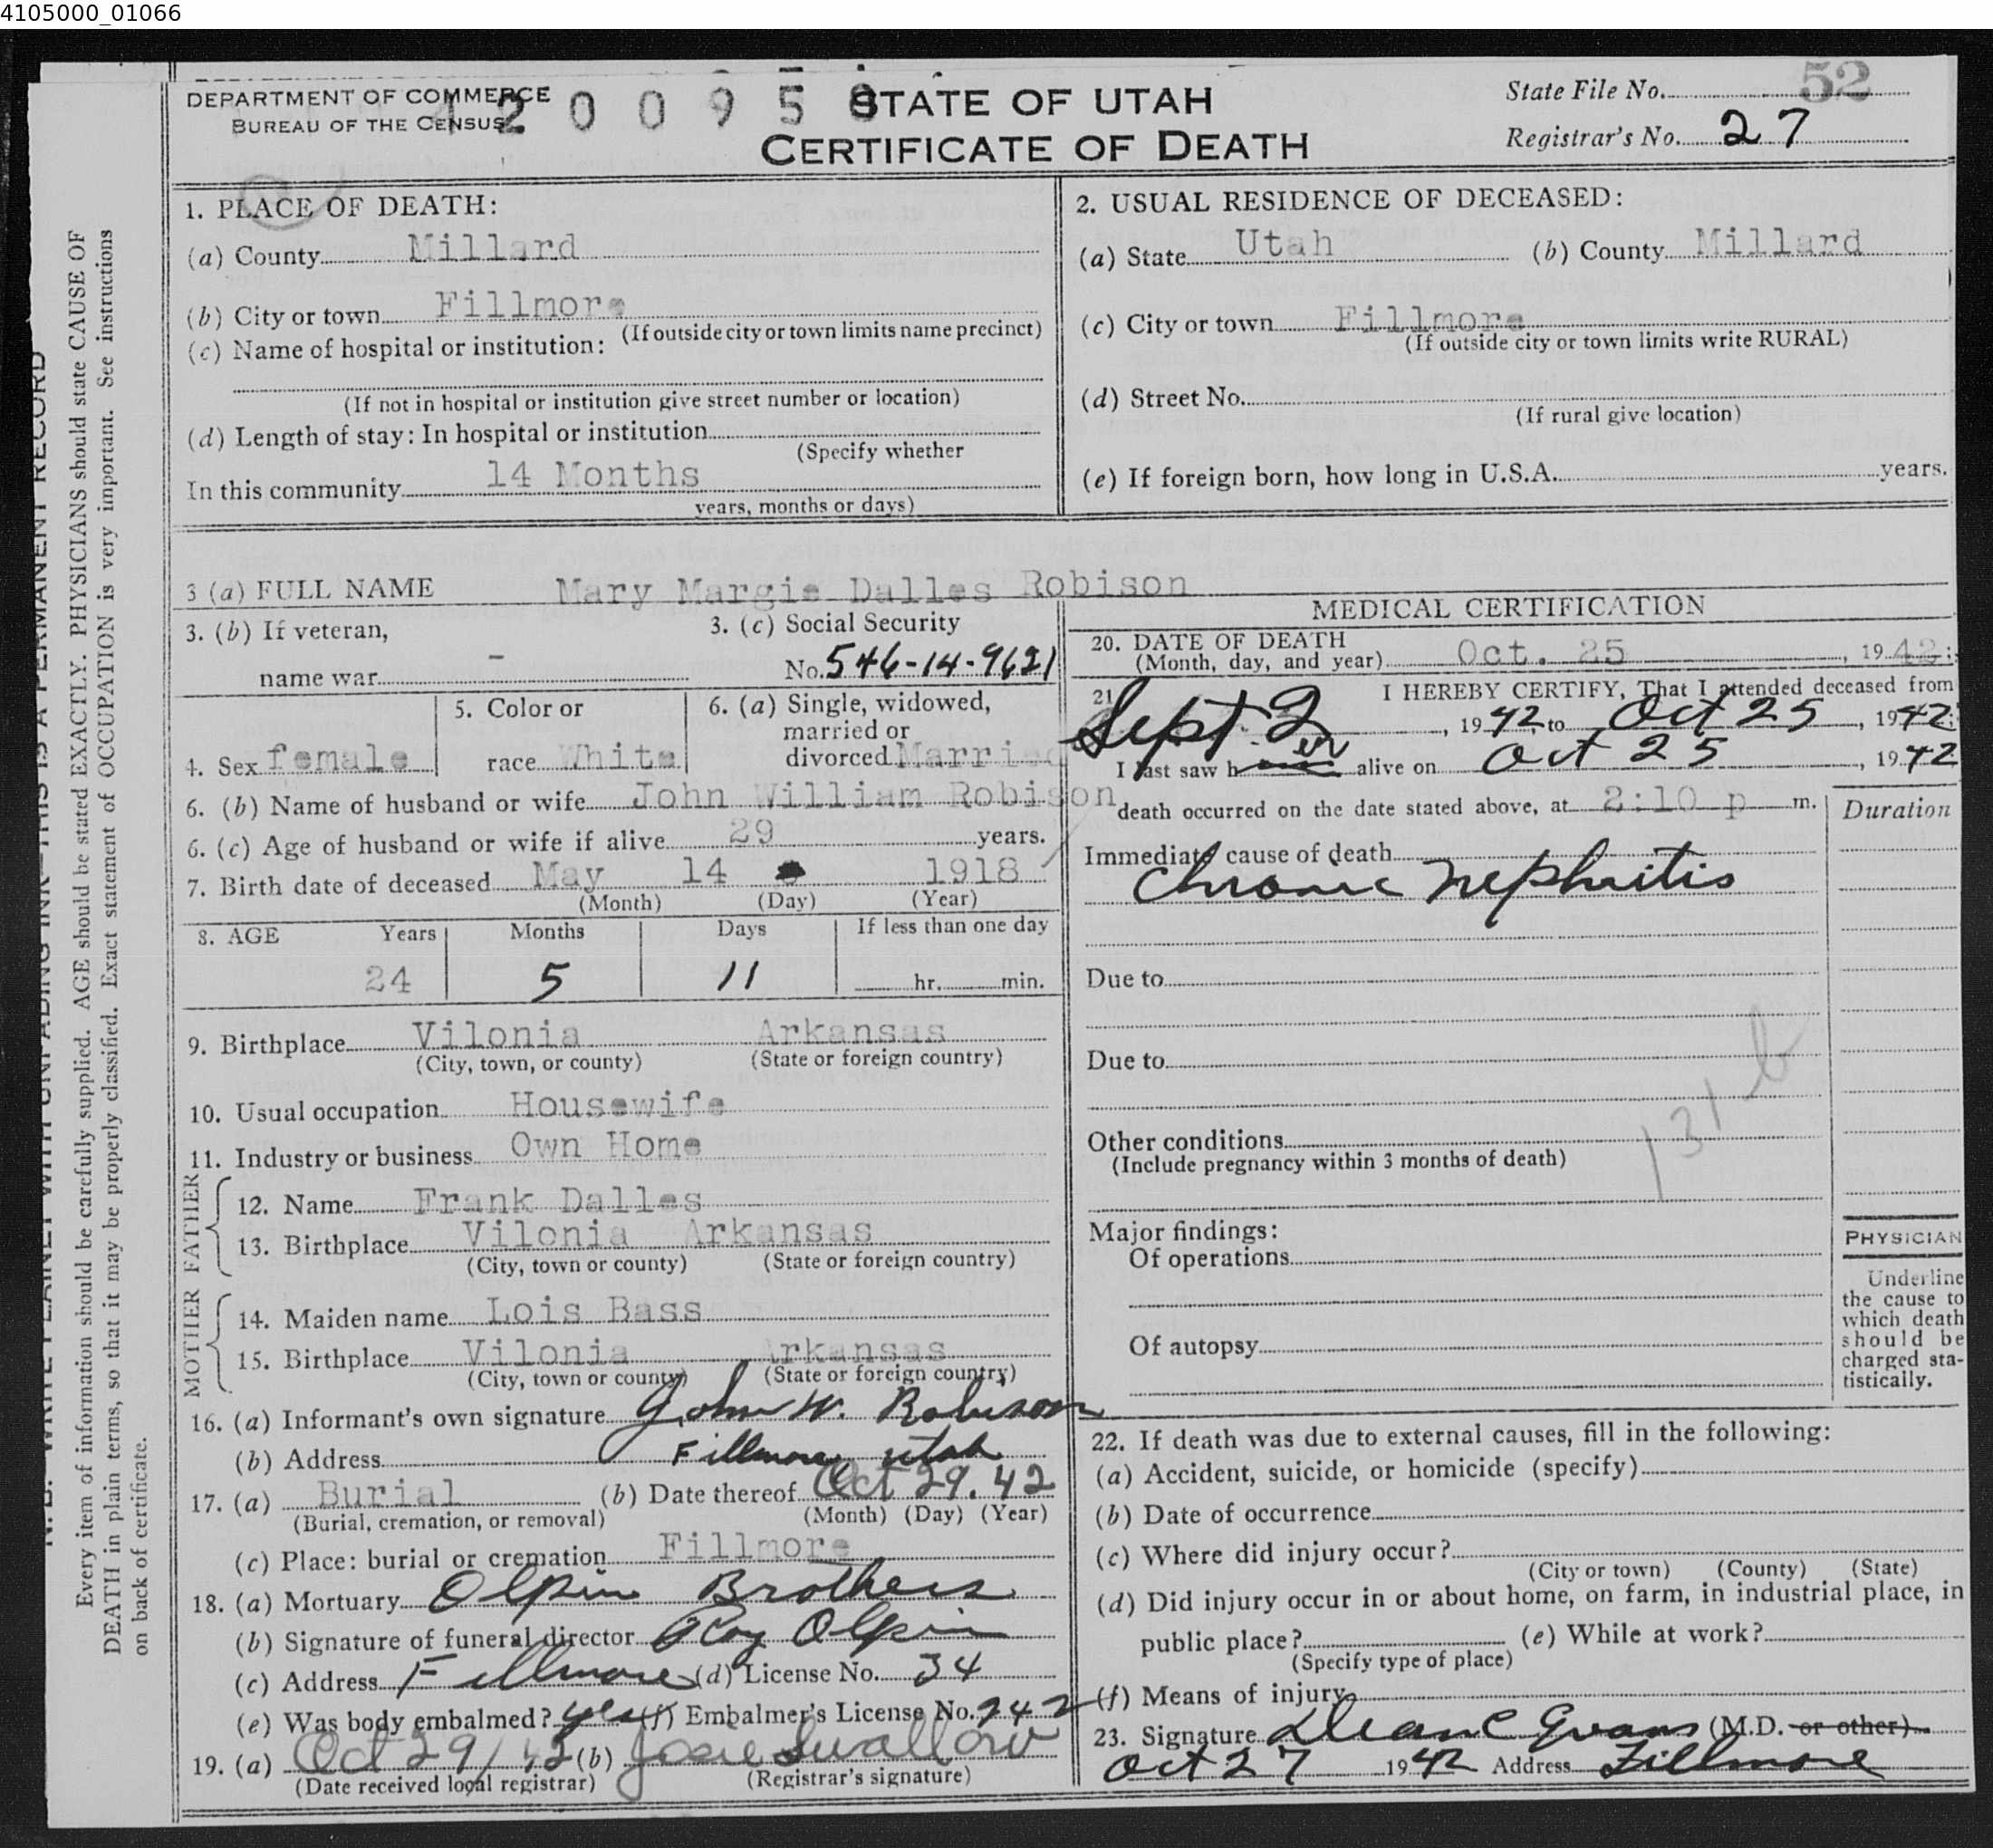 4105000_01066
DEPARTMENT OF COMMERCE
BUREAU OF THE CENSUS
STATE OF UTAH
CERTIFICATE OF DEATH
State File No. 52
Registrar's No. 27
1. PLACE OF DEATH:
(a) County Millard
(b) City or town Fillmore
(If outside city or town limits name precinct)
(c) Name of hospital or institution:
(If not in hospital or institution give street number or location)
(d) Length of stay: In hospital or institution
(Specify whether
In this community 14 Months
years, months or days)
2. USUAL RESIDENCE OF DECEASED:
(a) State Utah (b) County Millard
(c) City or town Fillmore
(If outside city or town limits write RURAL)
(d) Street No.
(If rural give location)
(e) If foreign born, how long in U.S.A. years.
3 (a) FULL NAME Mary Margie Dalles Robison
3. (b) If veteran,
name war -
3. (c) Social Security
No. 546-14-9621
4. Sex female
5. Color or
race White
6. (a) Single, widowed,
married or
divorced Married
6. (b) Name of husband or wife John William Robison
6. (c) Age of husband or wife if alive 29 years.
7. Birth date of deceased May 14 1918
(Month) (Day) (Year)
8. AGE Years Months Days If less than one day
24 5 11 hr. min.
9. Birthplace Vilonia Arkansas
(City, town, or county) (State or foreign country)
10. Usual occupation Housewife
11. Industry or business Own Home
FATHER
12. Name Frank Dalles
13. Birthplace Vilonia Arkansas
(City, town or county) (State or foreign country)
MOTHER
14. Maiden name Lois Bass
15. Birthplace Vilonia Arkansas
(City, town or county) (State or foreign country)
16. (a) Informant's own signature John W. Robison
(b) Address Fillmore, Utah
17. (a) Burial (b) Date thereof Oct 29. 42
(Burial, cremation, or removal) (Month) (Day) (Year)
(c) Place: burial or cremation Fillmore
18. (a) Mortuary Olpin Brothers
(b) Signature of funeral director Roy Olpin
(c) Address Fillmore (d) License No. 34
(e) Was body embalmed? yes (f) Embalmer's License No. 242
19. (a) Oct 29/42 (b) Josie Swallow
(Date received local registrar) (Registrar's signature)
MEDICAL CERTIFICATION
20. DATE OF DEATH
(Month, day, and year) Oct. 25, 1942
21 I HEREBY CERTIFY, That I attended deceased from
Sept. 2, 1942, to Oct 25, 1942
I last saw her alive on Oct 25, 1942
death occurred on the date stated above, at 2:10 p m.
Duration
Immediate cause of death
Chronic Nephritis
Due to
Due to
131 b
Other conditions
(Include pregnancy within 3 months of death)
Major findings:
Of operations
Of autopsy
PHYSICIAN
Underline
the cause to
which death
should be
charged sta-
tistically.
22. If death was due to external causes, fill in the following:
(a) Accident, suicide, or homicide (specify)
(b) Date of occurrence
(c) Where did injury occur?
(City or town) (County) (State)
(d) Did injury occur in or about home, on farm, in industrial place, in
public place? (e) While at work?
(Specify type of place)
(f) Means of injury
23. Signature Deane Evans (M.D. or other)
Oct 27 1942 Address Fillmore
Every item of information should be carefully supplied. AGE should be stated EXACTLY. PHYSICIANS should state CAUSE OF
DEATH in plain terms, so that it may be properly classified. Exact statement of OCCUPATION is very important. See instructions
on back of certificate.